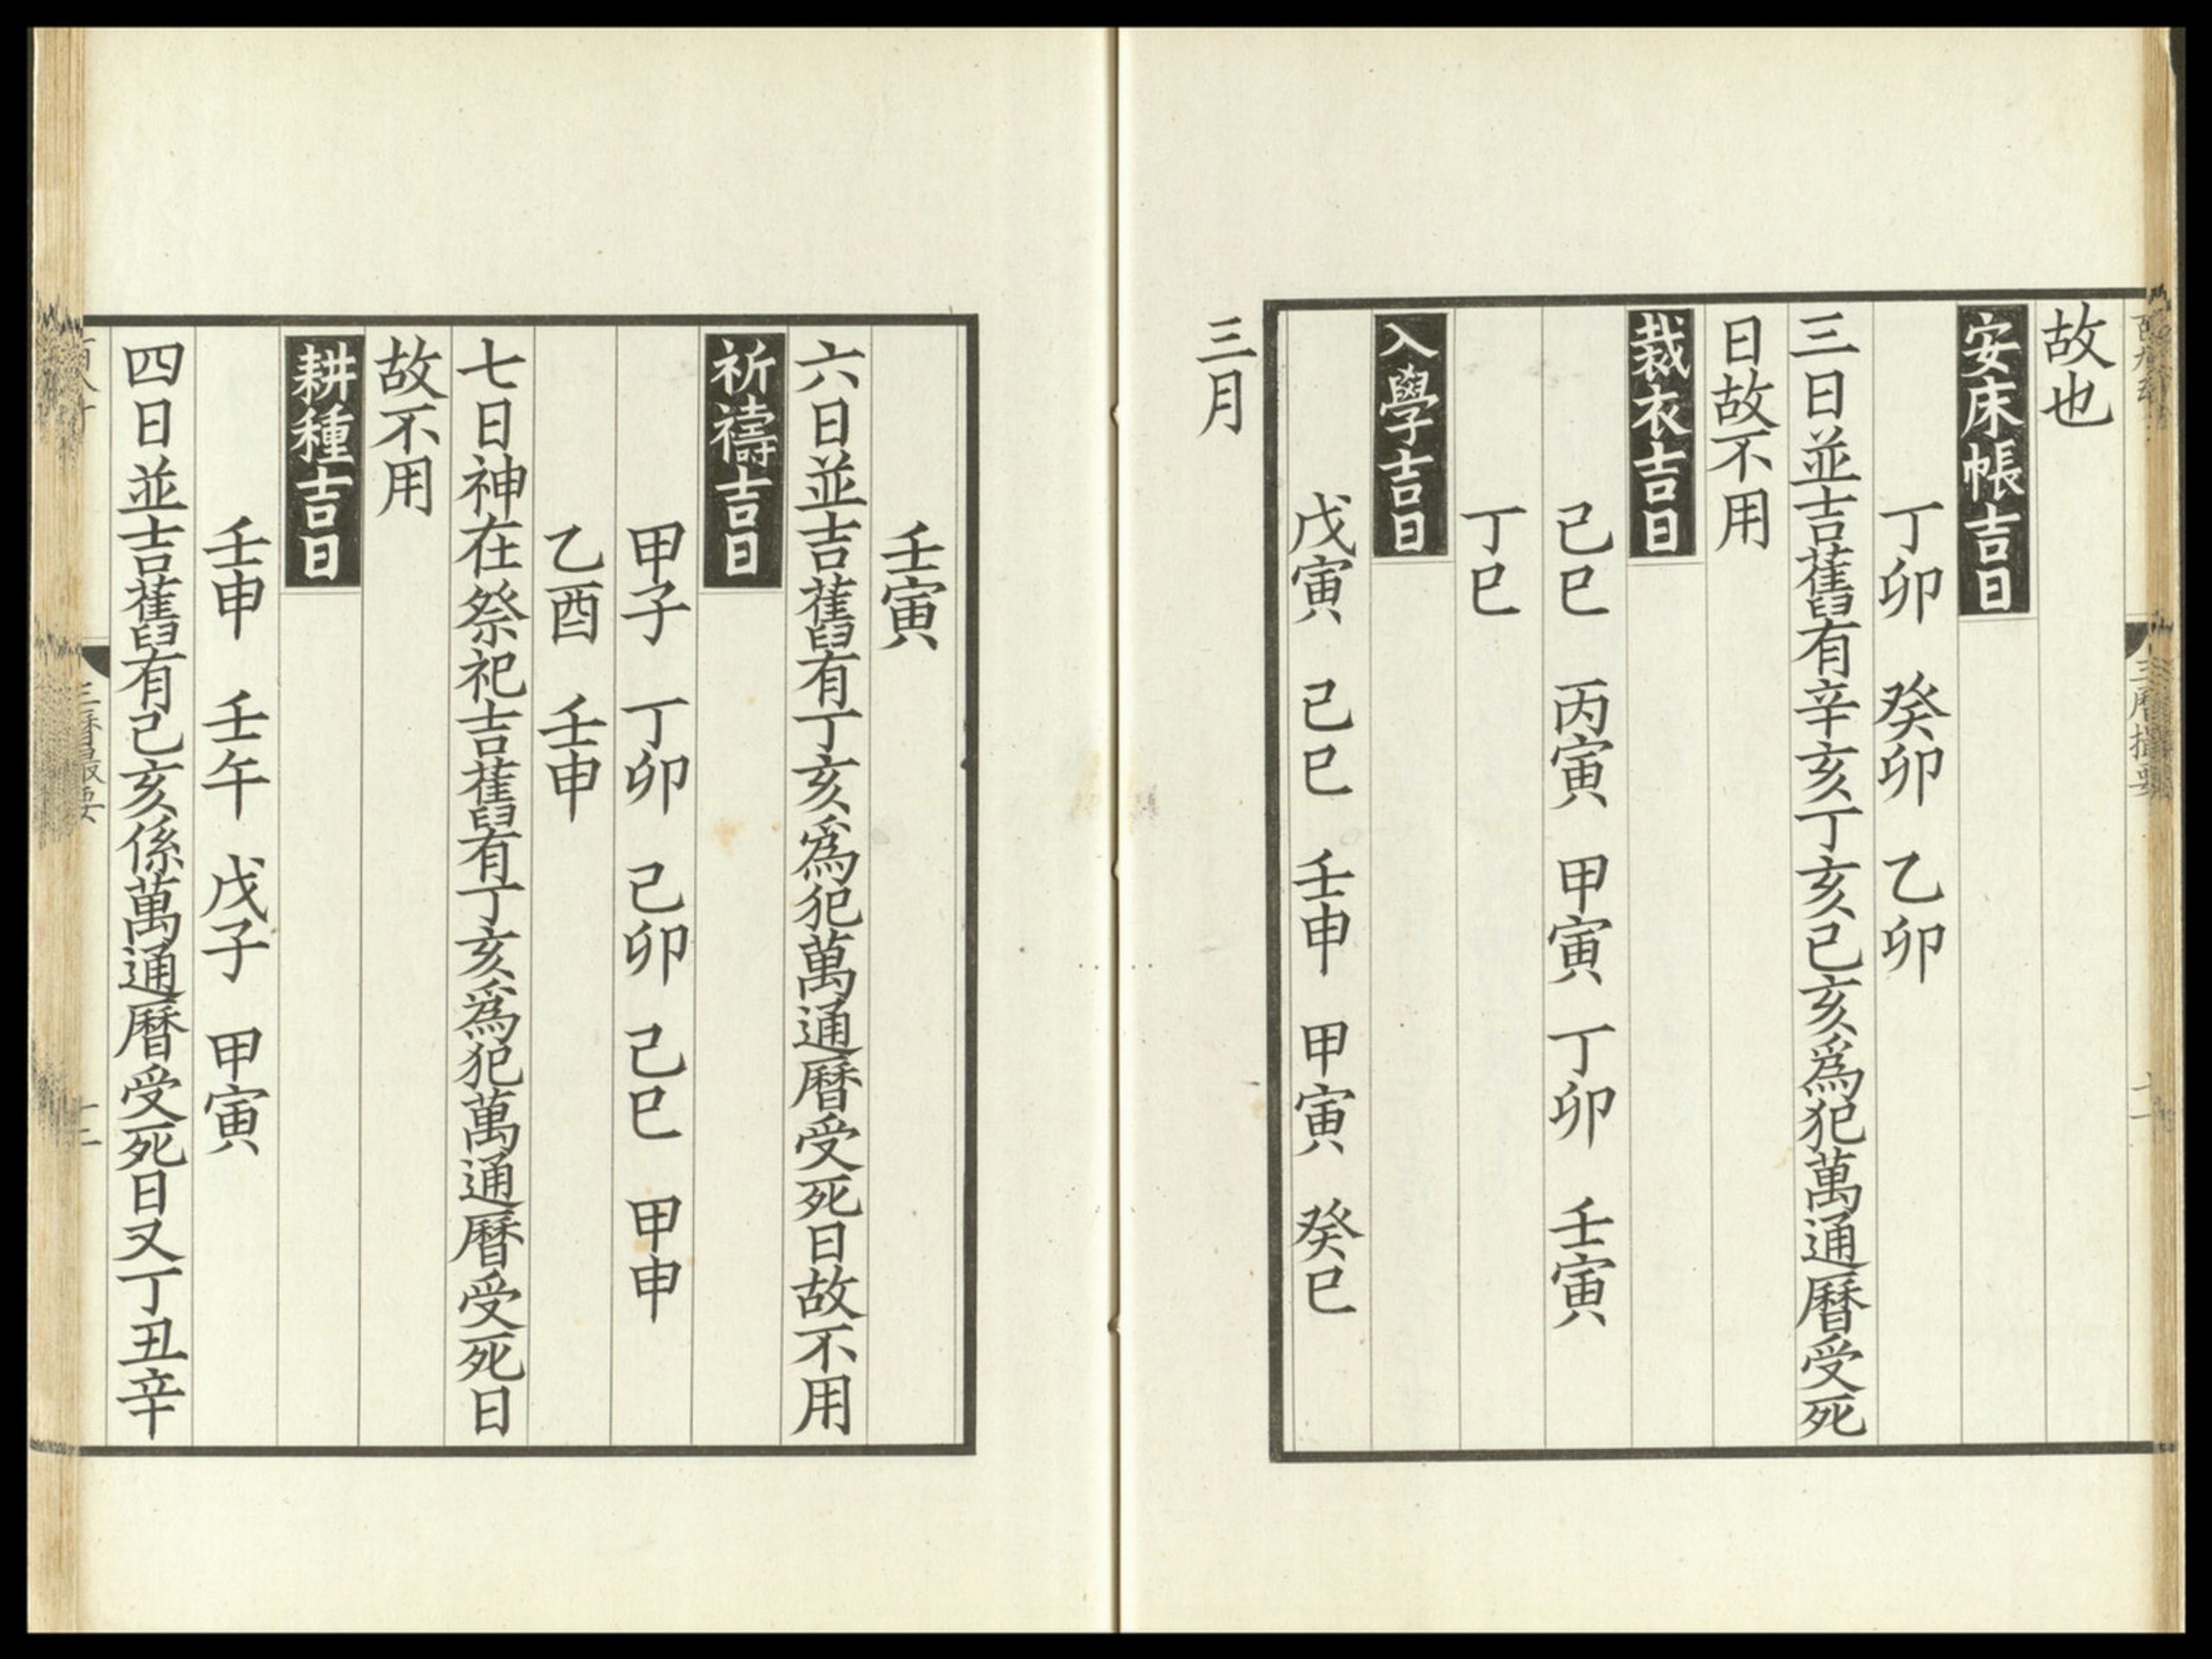 故也
安床帳吉日
丁卯　癸卯　乙卯
三日並吉舊有辛亥丁亥己亥爲犯萬通曆受死
日故不用
裁衣吉日
己巳　丙寅　甲寅　丁卯　壬寅
丁巳
入學吉日
戊寅　己巳　壬申　甲寅　癸巳
三月
壬寅
六日並吉舊有丁亥爲犯萬通曆受死日故不用
祈禱吉日
甲子　丁卯　己卯　己巳　甲申
乙酉　壬申
七日神在祭祀吉舊有丁亥爲犯萬通曆受死日
故不用
耕種吉日
壬申　壬午　戊子　甲寅
四日並吉舊有己亥係萬通曆受死日又丁丑辛